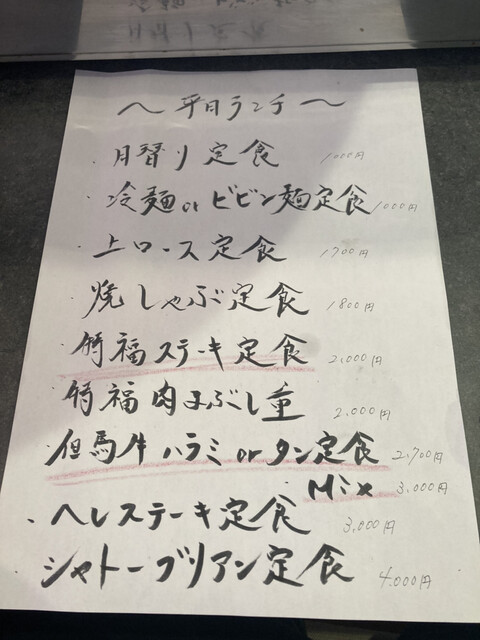 〜平日ランチ〜
・月替り定食 1000円
・冷麺orビビン麺定食 1000円
・上ロース定食 1700円
・焼しゃぶ定食 1800円
・福ステーキ定食 2,000円
・福肉まぶし重 2,000円
・但馬牛ハラミorタン定食 2,700円
Mix 3,000円
・ヘレステーキ定食 3,000円
・シャトーブリアン定食 4,000円